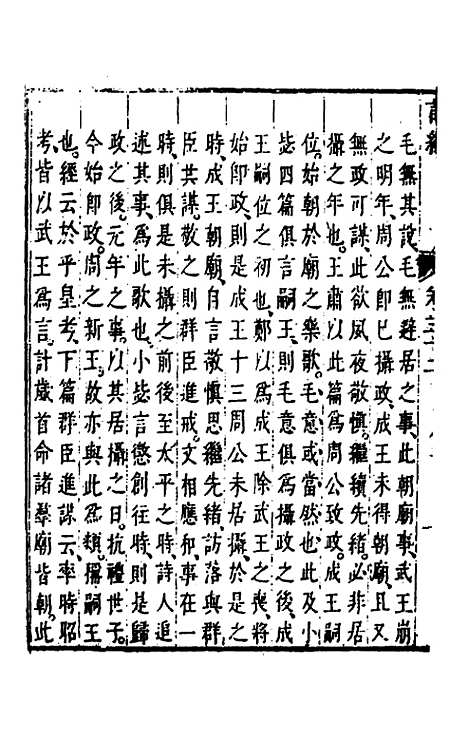 毛無其說毛無避居之事此朝廟事武王崩
之明年周公即已攝政成王未得朝廟且又
無政可謀此欲夙夜敬愼繼續先緒必非居
攝之年也王肅以此篇爲周公致政成王嗣
位始朝於廟之樂歌毛意或當然也此及小
毖四篇俱言嗣王毛意俱爲攝政之後成
王嗣位之初也鄭以爲成王除武王之喪將
始即政則是成王十三周公未居攝於是之
時成王朝廟自言敬愼思繼先緒訪落與群
臣共謀敬之則群臣進戒文相應和事在一
時則俱是未攝之前後至太平之時詩人追
述其事爲此歌也小毖言懲創往時則是歸
政之後元年之事以其居攝之日抗禮世子
今始即政周之新王故亦與此爲類稱嗣王
也經云於乎皇考下篇群臣進謀云率時昭
考皆以武王爲言計歲首命諸羣廟皆朝此